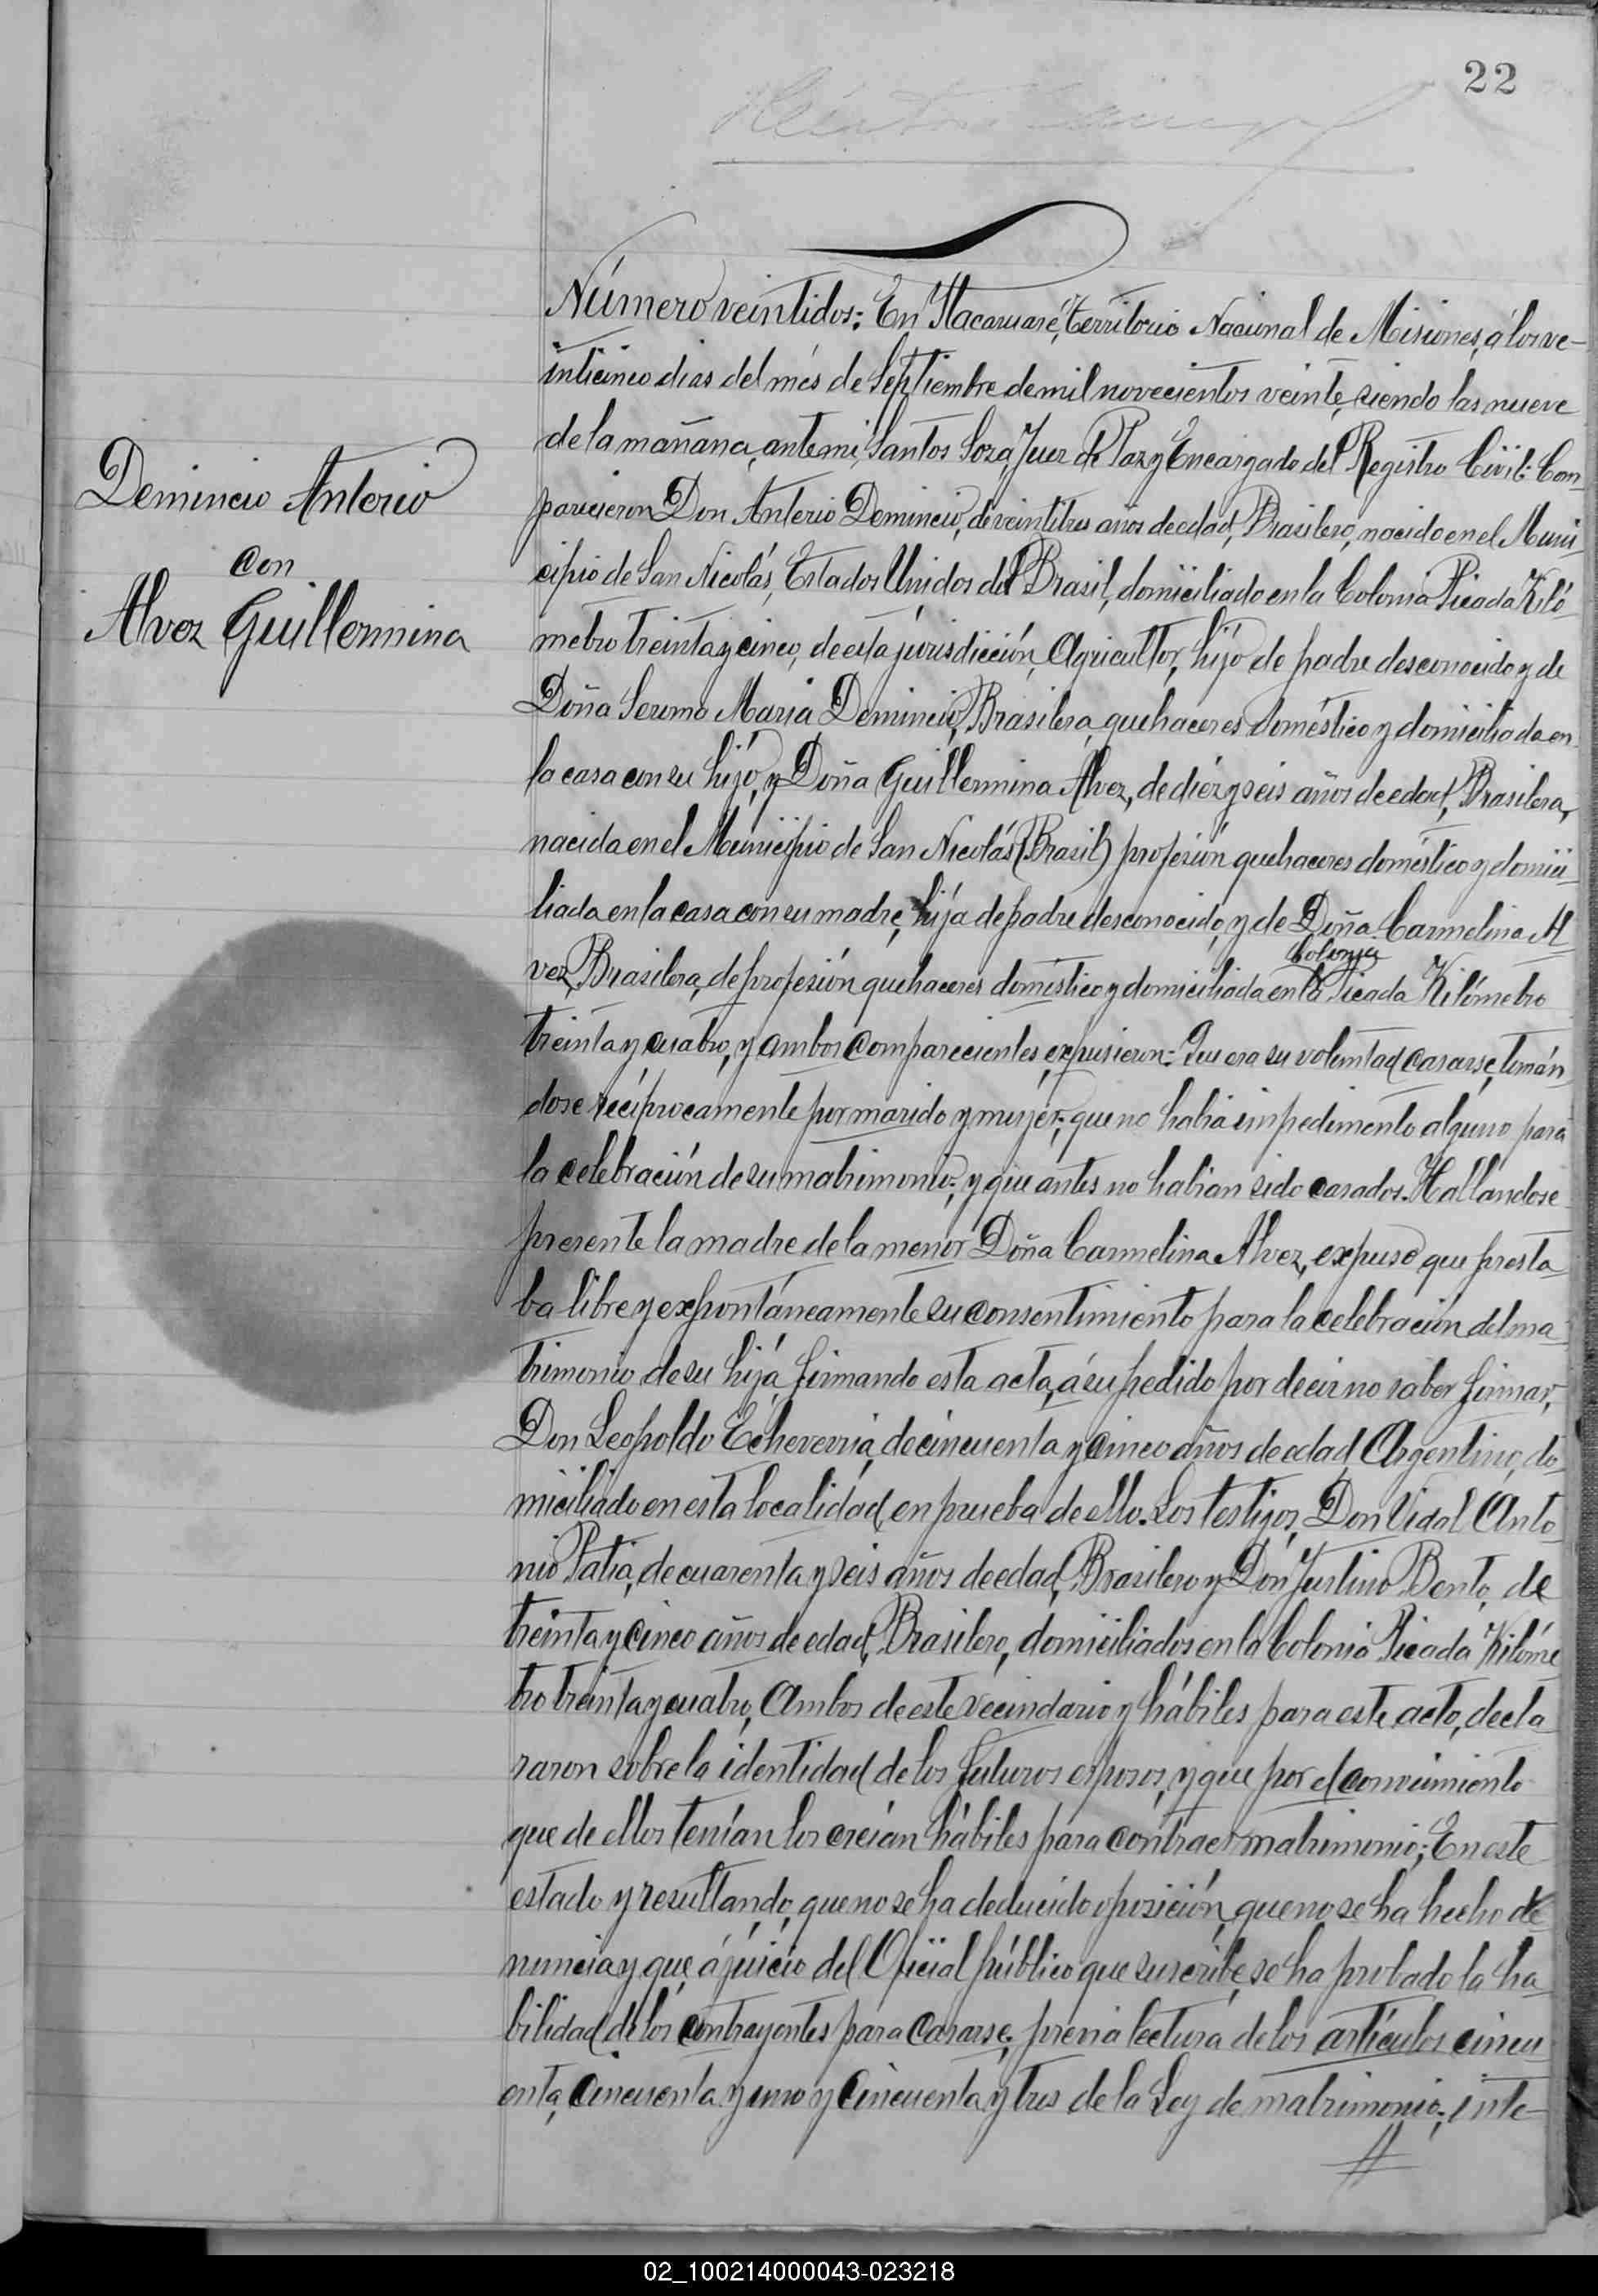 22
Número veintidos: En Itacaruaré, Territorio Nacional de Misiones, á los ve-
inticinco dias del més de Septiembre de mil novecientos veinte, siendo las nueve
de la mañana, ante mi, Santos Soza, Juez de Paz y Encargado del Registro Civil: Com-
parecieron Don Anterio Demincio, de veintitres años de edad, Brasilero, nacido en el Muni
cipio de San Nicolás, Estados Unidos del Brasil, domiciliado en la Colonia Picada Kiló
metro treinta y cinco, de esta jurisdicción, Agricultor, hijo de padre desconocido y de
Doña Maria Demincio, Brasilera, quehaceres doméstico y domiciliada en
la casa con su hijo, y Doña Guillermina Alvez, de diéz y seis años de edad, Brasilera,
nacida en el Municipio de San Nicolás (Brasil) profesión quehaceres doméstico y domici-
liada en la casa con su madre, hija de padre desconocido, y de Doña Carmelina Al
Colonia
vez, Brasilera, de profesión quehaceres doméstico y domiciliada en la Picada Kilómetro
treinta y cuatro, y ambos comparecientes, expusieron: Que era su voluntad casarse, tomán
dose recíprocamente por marido y mujer; que no habia impedimento alguno para
la celebración de su matrimonio; y que antes no habian sido casados. Hallándose
presente la madre de la menor Doña Carmelina Alvez, expuso que presta-
ba libre y expontáneamente su consentimiento para la celebración del ma-
trimonio de su hija, firmando esta acta, á su pedido por decir no saber firmar,
Don Leopoldo Echeverria, de cincuenta y cinco años de edad, Argentino, do-
miciliado en esta localidad, en prueba de ello. Los testigos, Don Vidal Anto
nio Patia, de cuarenta y seis años de edad, Brasilero y Don Justino Bento, de
treinta y cinco años de edad, Brasilero, domiciliados en la Colonia Picada Kilóme
tro treinta y cuatro, Ambos de este vecindario y hábiles para este acto, decla
raron sobre la identidad de los futuros esposos, y que por el conocimiento
que de ellos tenían los creían hábiles para contraer matrimonio; En este
estado y resultando, que no se ha deducido oposición, que no se ha hecho de
nuncia y que, á juicio del Oficial público que suscribe, se ha probado la ha
bilidad de los contrayentes para casarse; previa lectura de los artículos cincu
enta, cincuenta y uno y cincuenta y tres de la Ley de matrimonio; inte-
Demincio Anterio
con
Alvez Guillermina
02_100214000043-023218